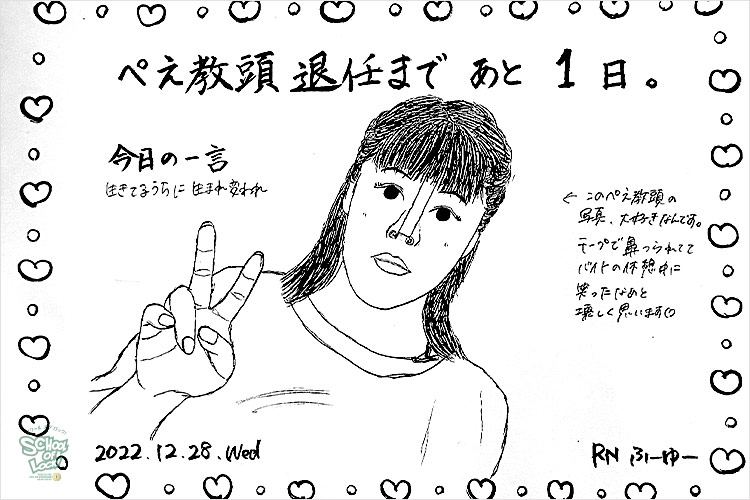 ぺえ教頭 退任まで あと 1 日。
今日の一言
生きてるうちに 生まれ変われ
← このぺえ教頭の
写真、大好きなんです。
テープで鼻つられてて
バイトの休憩中に
笑ったなあと
懐しく思います♡
2022.12.28.Wed
RN ふーゆー
SCHOOL
OF
LOCK!